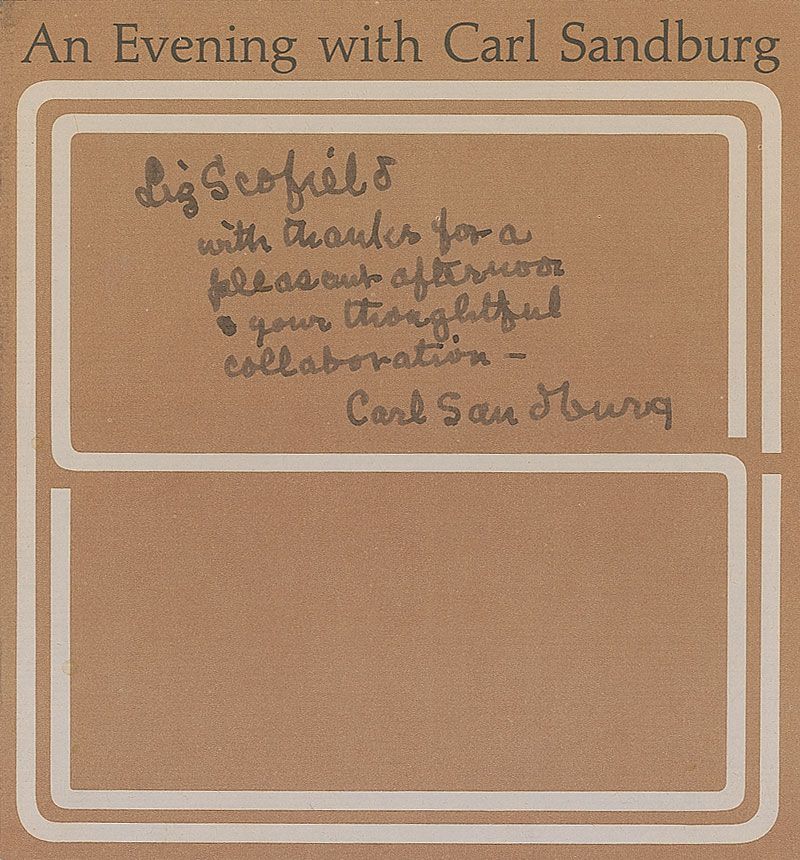 An Evening with Carl Sandburg
Liz Scofield
with thanks for a
pleasant afternoon
& your thoughtful
collaboration –
Carl Sandburg